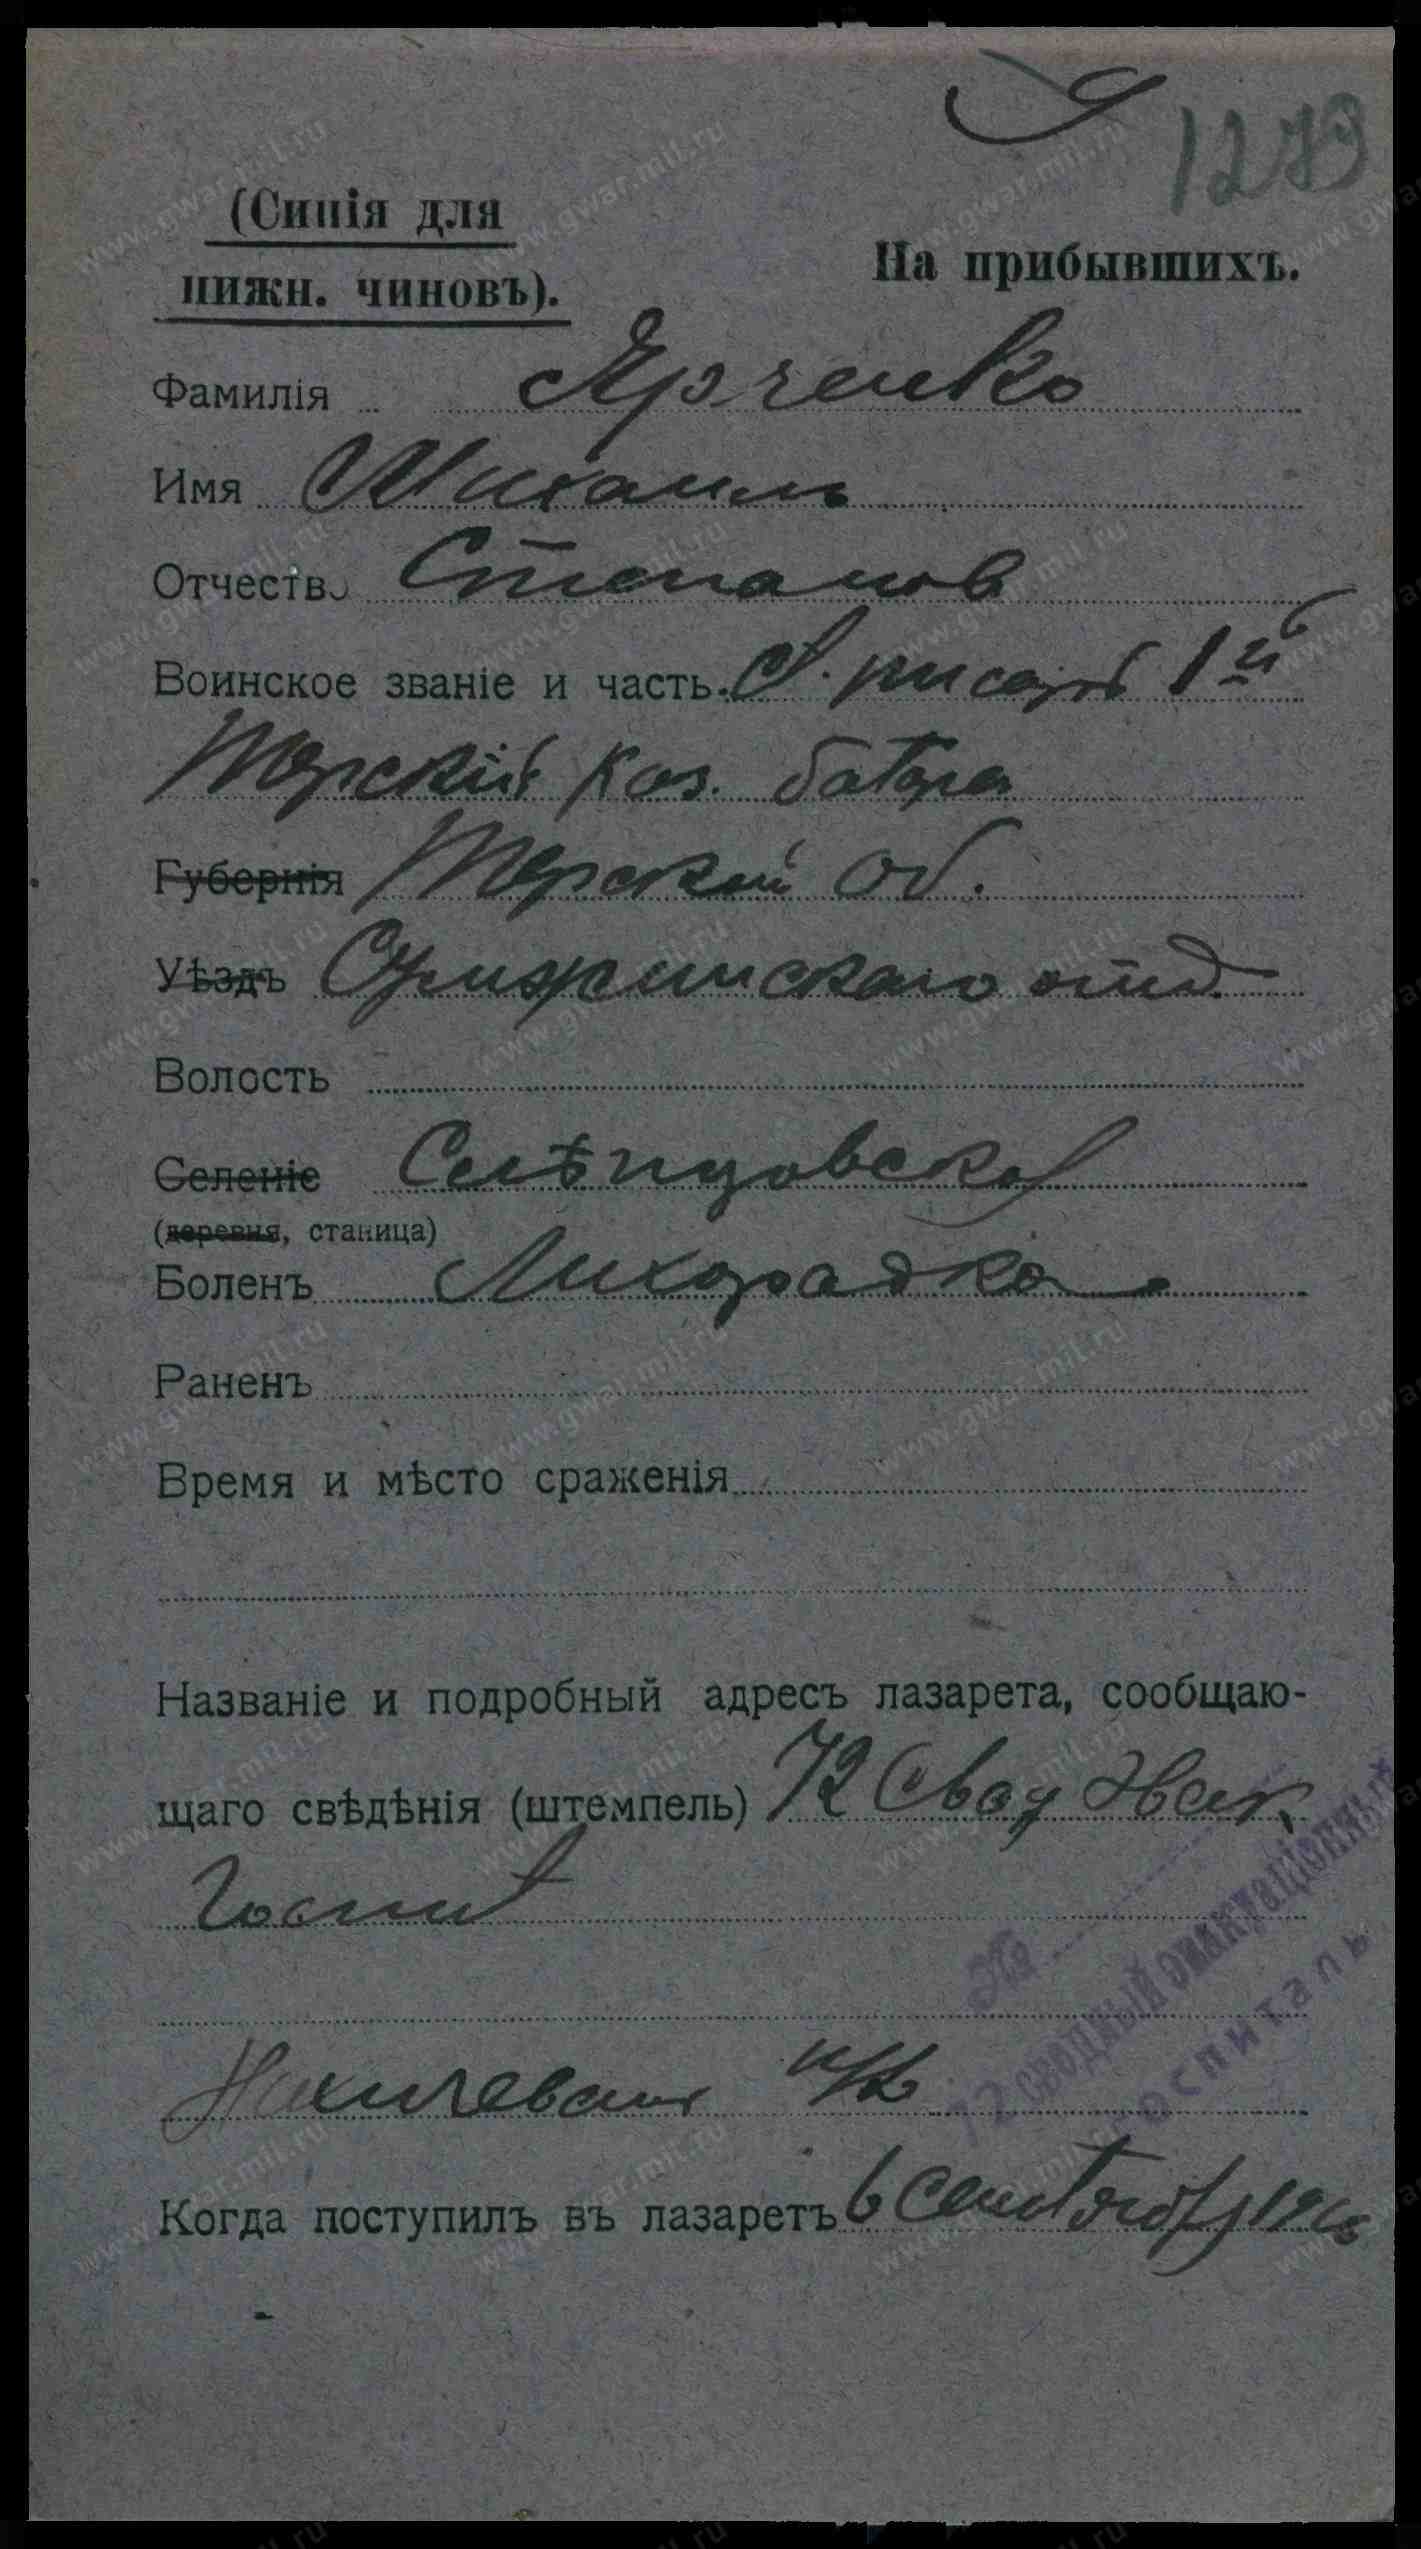 1273
(Синія для
нижн. чиновъ).
На прибывшихъ.
Фамилія Ярченко
Имя Михаилъ
Отчество Степанов
Воинское званіе и часть С. писарь 1й
Терскій каз. батареи
Губернія Терской Об.
Уѣздъ Сунженскаго отд.
Волость
Селеніе Слѣпцовской
(деревня, станица)
Боленъ Лихорадка
Раненъ
Время и мѣсто сраженія
Названіе и подробный адресъ лазарета, сообщаю-
щаго свѣдѣнія (штемпель) 72 Свод
Госпит
№
72 сводный эвакуаціонный
госпиталь
Нахичевань н/Д
Когда поступилъ въ лазаретъ 6 Сентября 1916
www.gwar.mil.ru